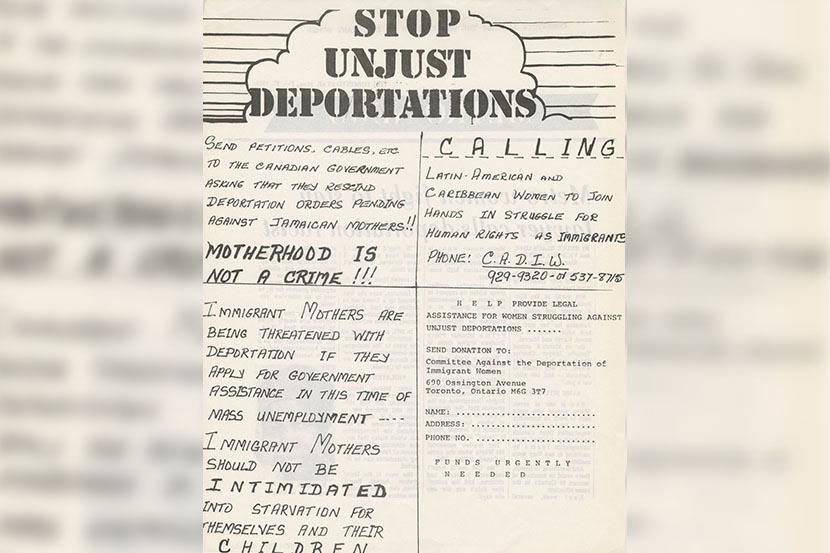 STOP
UNJUST
DEPORTATIONS
SEND PETITIONS, CABLES, ETC
TO THE CANADIAN GOVERNMENT
ASKING THAT THEY RESCIND
DEPORTATION ORDERS PENDING
AGAINST JAMAICAN MOTHERS!!
MOTHERHOOD IS
NOT A CRIME!!!
CALLING
LATIN-AMERICAN AND
CARIBBEAN WOMEN TO JOIN
HANDS IN STRUGGLE FOR
HUMAN RIGHTS AS IMMIGRANTS
PHONE: C.A.D.I.W.
929-9320-or 537-8715
IMMIGRANT MOTHERS ARE
BEING THREATENED WITH
DEPORTATION IF THEY
APPLY FOR GOVERNMENT
ASSISTANCE IN THIS TIME OF
MASS UNEMPLOYMENT ----
IMMIGRANT MOTHERS
SHOULD NOT BE
INTIMIDATED
INTO STARVATION FOR
THEMSELVES AND THEIR
CHILDREN
HELP PROVIDE LEGAL
ASSISTANCE FOR WOMEN STRUGGLING AGAINST
UNJUST DEPORTATIONS ......
SEND DONATION TO:
Committee Against the Deportation of
Immigrant Women
690 Ossington Avenue
Toronto, Ontario M6G 3T7
NAME: ............................
ADDRESS: .........................
PHONE NO. ........................
FUNDS URGENTLY
NEEDED